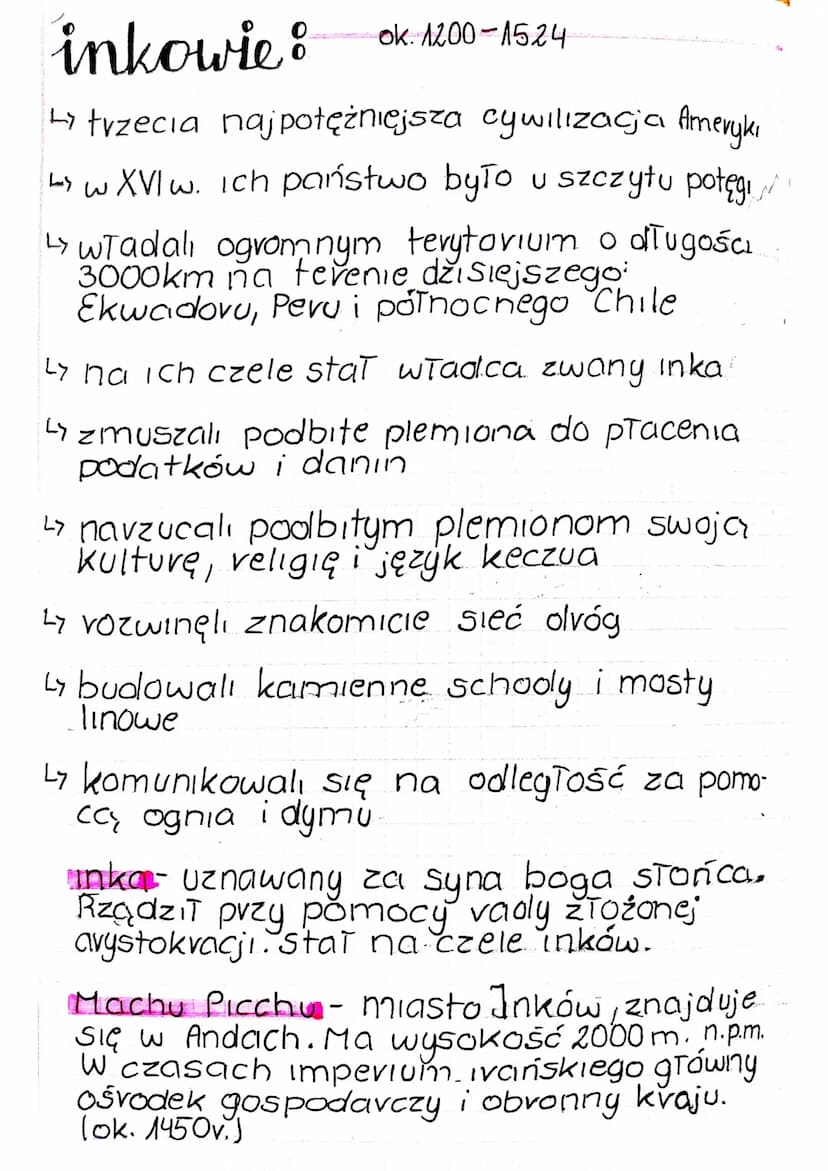 inkowie: ok. 1200-1524
↳ trzecia najpotężniejsza cywilizacja Ameryki
↳ w XVI w. ich państwo było u szczytu potęgi
↳ władali ogromnym terytorium o długości
3000km na terenie dzisiejszego:
Ekwadoru, Peru i północnego Chile
↳ na ich czele stał władca zwany inka
↳ zmuszali podbite plemiona do płacenia
podatków i danin
↳ narzucali podbitym plemionom swoją
kulturę, religię i język keczua
↳ rozwinęli znakomicie sieć dróg
↳ budowali kamienne schody i mosty
linowe
↳ komunikowali się na odległość za pomo-
cą ognia i dymu
inka - uznawany za syna boga słońca.
Rządził przy pomocy rady złożonej
arystokracji. Stał na czele inków.
Machu Picchu - miasto Inków, znajduje
się w Andach. Ma wysokość 2000 m. n.p.m.
W czasach imperium irańskiego główny
ośrodek gospodarczy i obronny kraju.
(ok. 1450r.)